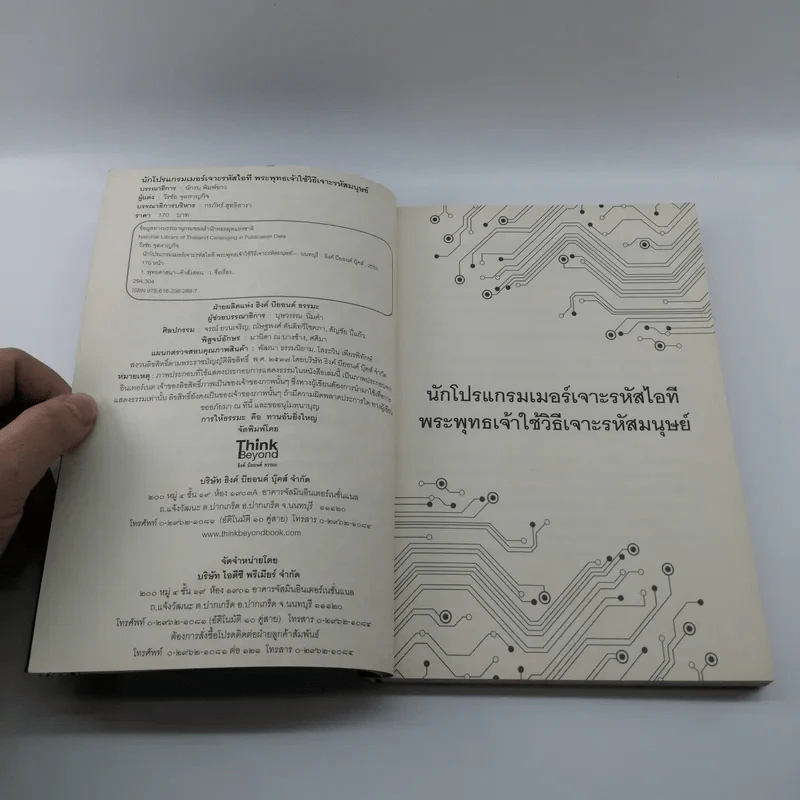 นักโปรแกรมเมอร์เจาะรหัสไอที พระพุทธเจ้าใช้วิธีเจาะรหัสมนุษย์
บรรณาธิการ : นักรบ พิมพ์ขาว
ผู้แต่ง : วีรชัย จุดหาญกิจ
บรรณาธิการบริหาร : กรภัทร์ สุทธิดารา
ราคา 170 บาท
ข้อมูลทางบรรณานุกรมของสำนักหอสมุดแห่งชาติ
National Library of Thailand Cataloging in Publication Data
นักโปรแกรมเมอร์เจาะรหัสไอที พระพุทธเจ้าใช้วิธีเจาะรหัสมนุษย์.-- นนทบุรี : ธิงค์ บียอนด์ บุ๊คส์
170 หน้า.
1. พุทธศาสนา--คำสั่งสอน. I. ชื่อเรื่อง.
294.304
ISBN 978-616-236-269-7
ฝ่ายผลิตแห่ง ธิงค์ บียอนด์ ธรรมะ
ผู้ช่วยบรรณาธิการ : นุชวรรณ นิ่มคำ
ศิลปกรรม : จรณ์ ยวนเจริญ, ณัษฐพงศ์ ตันติทวีโชคภา, ธัญชัย ปิ่นแก้ว
พิสูจน์อักษร : มานิดา ณ บางช้าง, ศศิมา
แผนกตรวจสอบคุณภาพสินค้า : พัฒนา ธรรมนิยาม, โสระวิน เพียรพิทักษ์
สงวนลิขสิทธิ์ตามพระราชบัญญัติลิขสิทธิ์ พ.ศ. ๒๕๓๗ โดยบริษัท ธิงค์ บียอนด์ บุ๊คส์ จำกัด
หมายเหตุ : ภาพประกอบที่ใช้แสดงประกอบการแสดงธรรมในหนังสือเล่มนี้ เป็นภาพประกอบจาก
อินเทอร์เนต เจ้าของลิขสิทธิ์ภาพเป็นของเจ้าของภาพนั้นๆ ซึ่งทางผู้เขียนต้องการนำมาใช้เพื่อการ
แสดงธรรมเท่านั้น ลิขสิทธิ์ยังคงเป็นของเจ้าของภาพนั้นๆ ถ้ามีความผิดพลาดประการใด ทางผู้เขียน
ขออภัยมา ณ ที่นี้ และขออนุโมทนาบุญ
การให้ธรรมะ คือ ทานอันยิ่งใหญ่
จัดพิมพ์โดย
Think
Beyond
ธิงค์ บียอนด์ ธรรมะ
บริษัท ธิงค์ บียอนด์ บุ๊คส์ จำกัด
๒๐๐ หมู่ ๔ ชั้น ๑๙ ห้อง ๑๙๐๓A อาคารจัสมินอินเตอร์เนชั่นแนล
ถ.แจ้งวัฒนะ ต.ปากเกร็ด อ.ปากเกร็ด จ.นนทบุรี ๑๑๑๒๐
โทรศัพท์ ๐-๒๙๖๒-๑๐๘๑ (อัตโนมัติ ๑๐ คู่สาย) โทรสาร ๐-๒๙๖๒-๑๐๘๔
www.thinkbeyondbook.com
จัดจำหน่ายโดย
บริษัท ไอดีซี พรีเมียร์ จำกัด
๒๐๐ หมู่ ๔ ชั้น ๑๙ ห้อง ๑๙๐๑ อาคารจัสมินอินเตอร์เนชั่นแนล
ถ.แจ้งวัฒนะ ต.ปากเกร็ด อ.ปากเกร็ด จ.นนทบุรี ๑๑๑๒๐
โทรศัพท์ ๐-๒๙๖๒-๑๐๘๑ (อัตโนมัติ ๑๐ คู่สาย) โทรสาร ๐-๒๙๖๒-๑๐๘๔
ต้องการสั่งซื้อโปรดติดต่อฝ่ายลูกค้าสัมพันธ์
โทรศัพท์ ๐-๒๙๖๒-๑๐๘๑ ต่อ ๑๒๑ โทรสาร ๐-๒๙๖๒-๑๐๘๔
นักโปรแกรมเมอร์เจาะรหัสไอที
พระพุทธเจ้าใช้วิธีเจาะรหัสมนุษย์